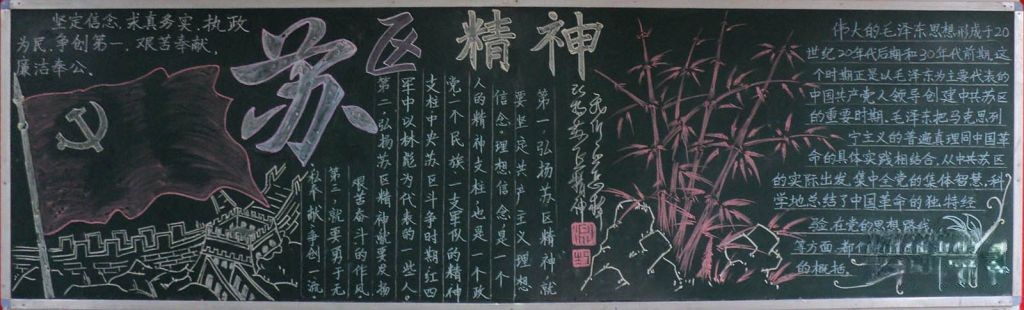 坚定信念、求真务实、执政
为民、争创第一、艰苦奉献、
廉洁奉公。
苏区精神
第一，弘扬苏区精神，就
要坚定共产主义理想
信念，理想信念是一个
人的精神支柱，也是一个政
党、一个民族、一支军队的精神
支柱，中央苏区斗争时期红四
军中以林彪为代表的一些人。
第二，弘扬苏区精神就要发扬
艰苦奋斗的作风，
第三，就要勇于无
私奉献，争创一流。
伟大的毛泽东思想形成于20
世纪20年代后期和30年代前期，这
个时期正是以毛泽东为主要代表的
中国共产党人领导创建中共苏区
的重要时期，毛泽东把马克思列
宁主义的普遍真理同中国革
命的具体实践相结合，从中共苏区
的实际出发，集中全党的集体智慧，科
学地总结了中国革命的独特经
验，在党的思想路线
等方面，都
的概括。